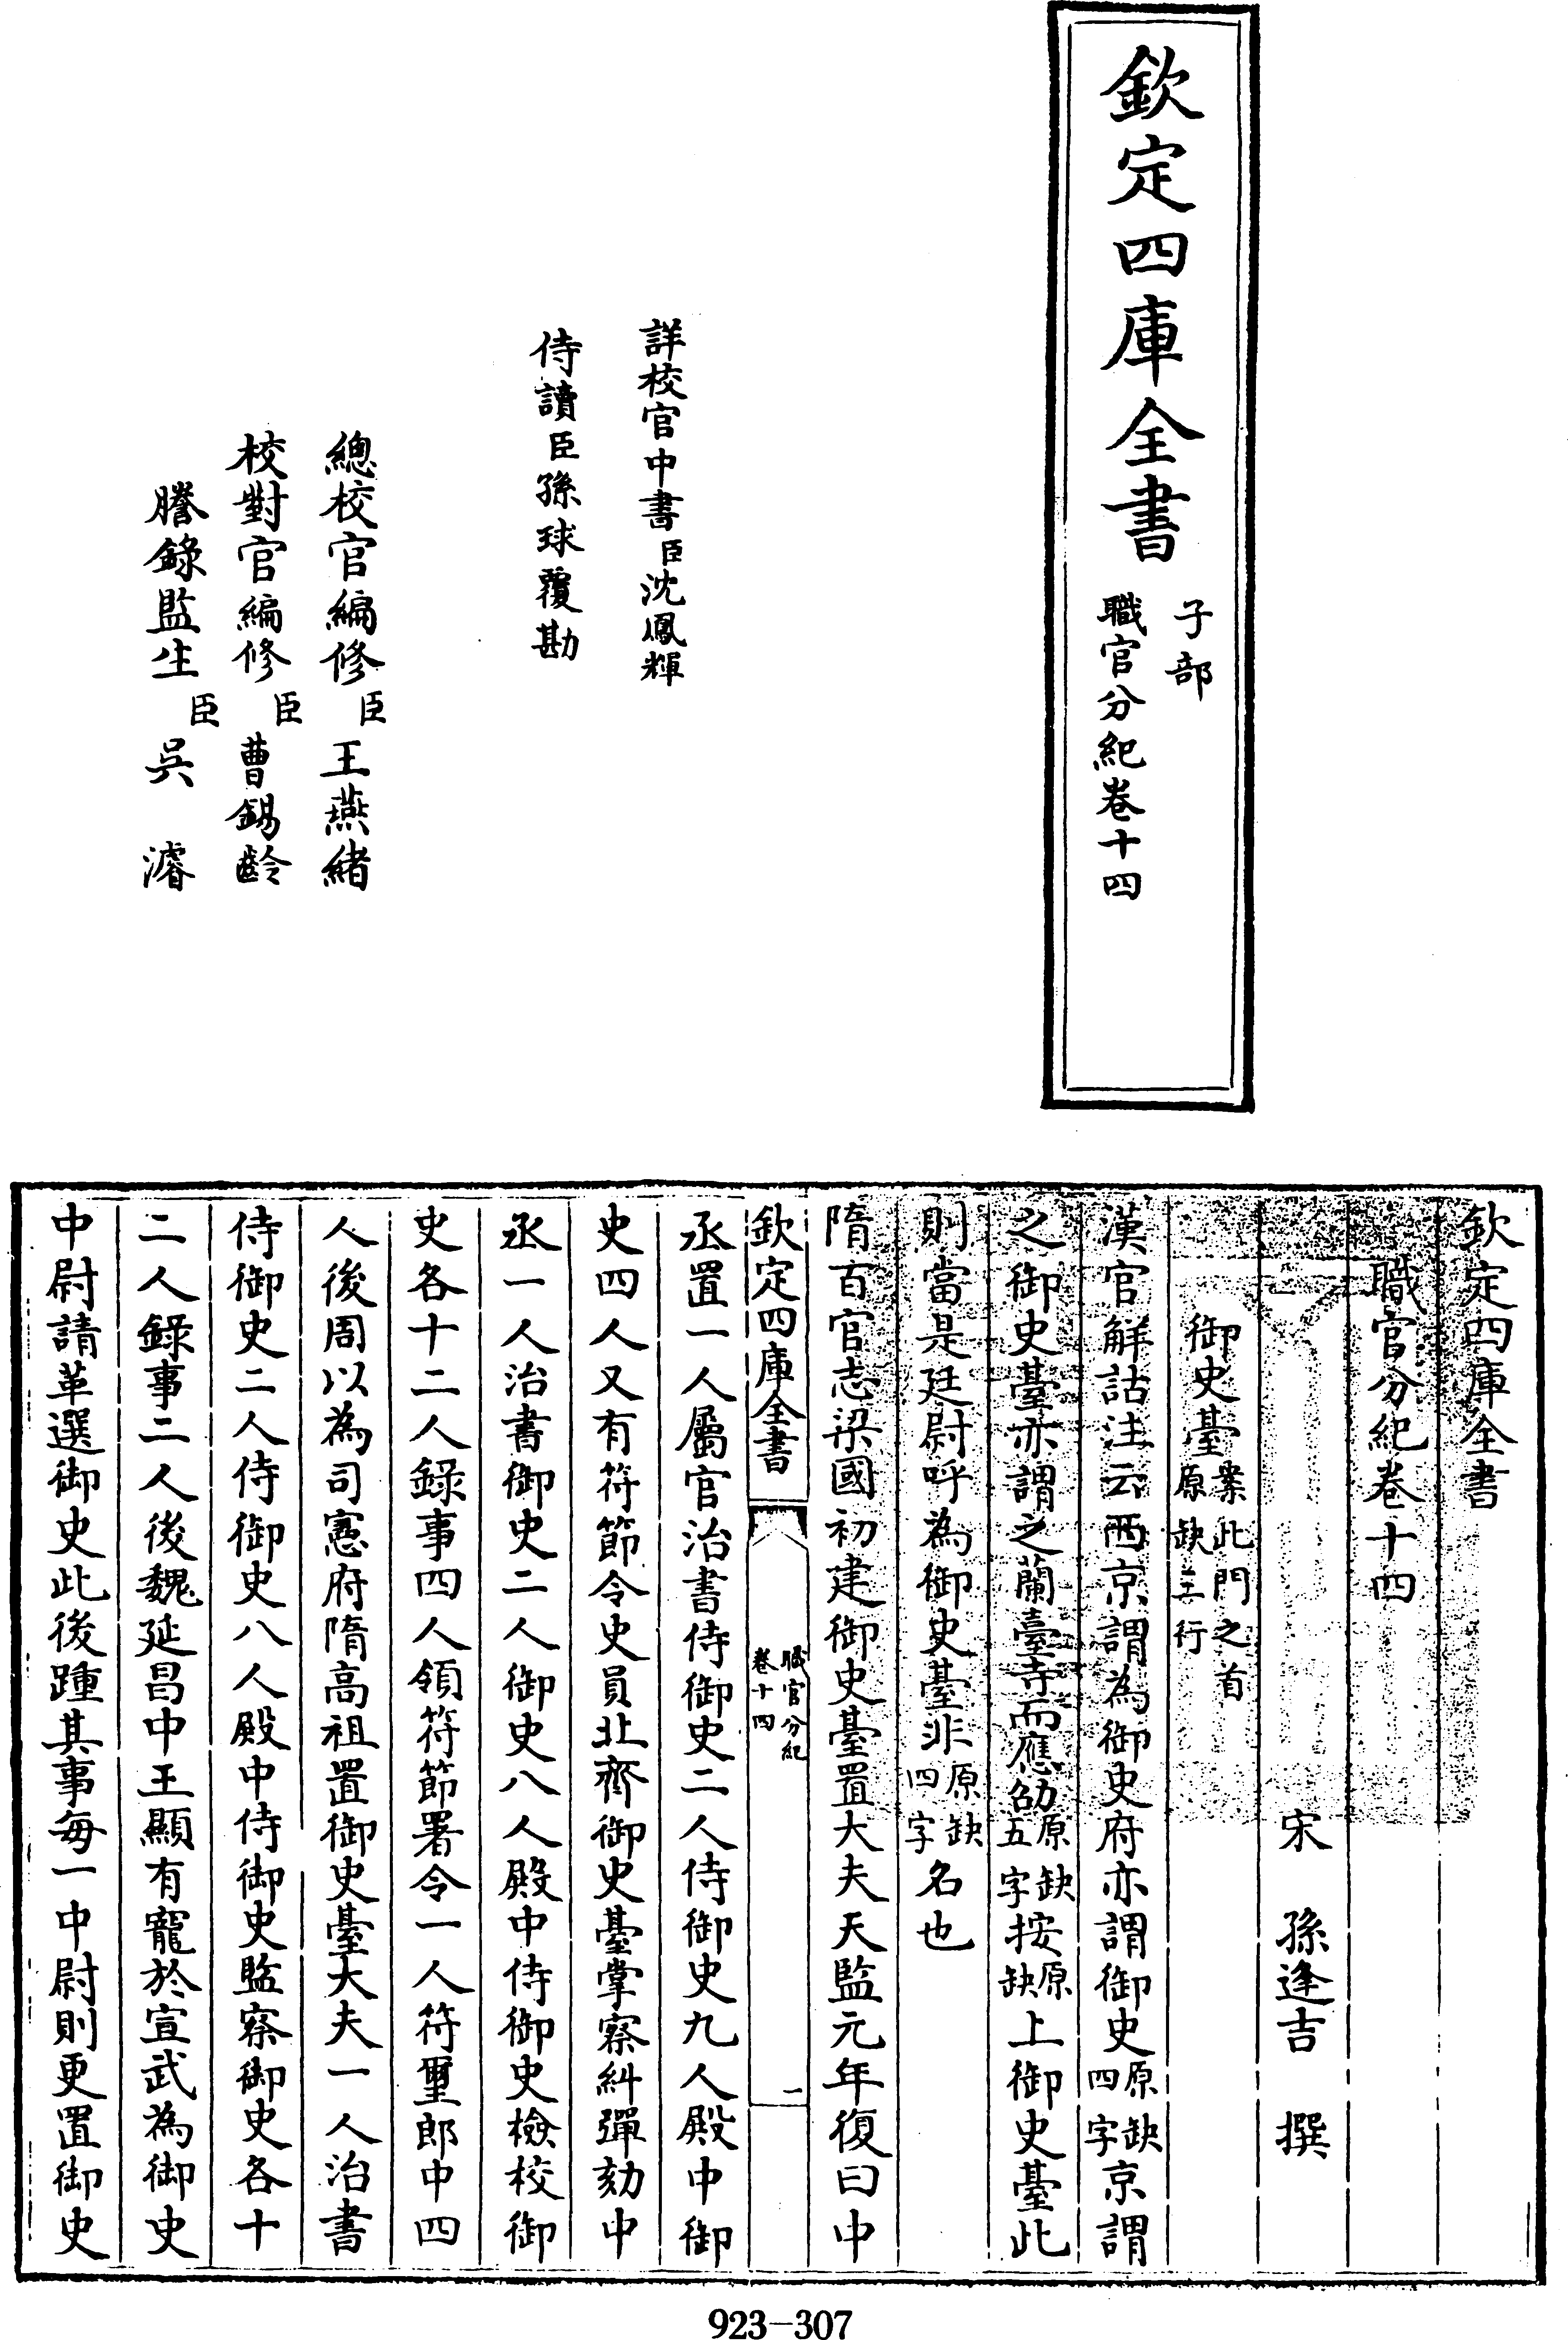 欽定四庫全書
子部
職官分紀卷十四
詳校官中書臣沈鳳輝
侍讀臣孫球覆勘
總校官編修臣王燕緒
校對官編修臣曹錫齡
謄錄監生臣吳濬
欽定四庫全書
職官分紀卷十四
宋 孫逢吉 撰
御史臺案此門之首原缺三行
漢官解詁注云西京謂為御史府亦謂御史原缺四字京謂
之御史臺亦謂之蘭臺寺而應劭原缺五字按原缺上御史臺此
則當是廷尉呼為御史臺非原缺四字名也
隋百官志梁國初建御史臺置大夫天監元年復曰中
欽定四庫全書
職官分紀
卷十四
一
丞置一人屬官治書侍御史二人侍御史九人殿中御
史四人又有符節令史員北齊御史臺掌察糾彈劾中
丞一人治書御史二人御史八人殿中侍御史檢校御
史各十二人錄事四人領符節署令一人符璽郎中四
人後周以為司憲府隋高祖置御史臺大夫一人治書
侍御史二人侍御史八人殿中侍御史監察御史各十
二人錄事二人後魏延昌中王顯有寵於宣武為御史
中尉請革選御史此後踵其事每一中尉則更置御史
923-307